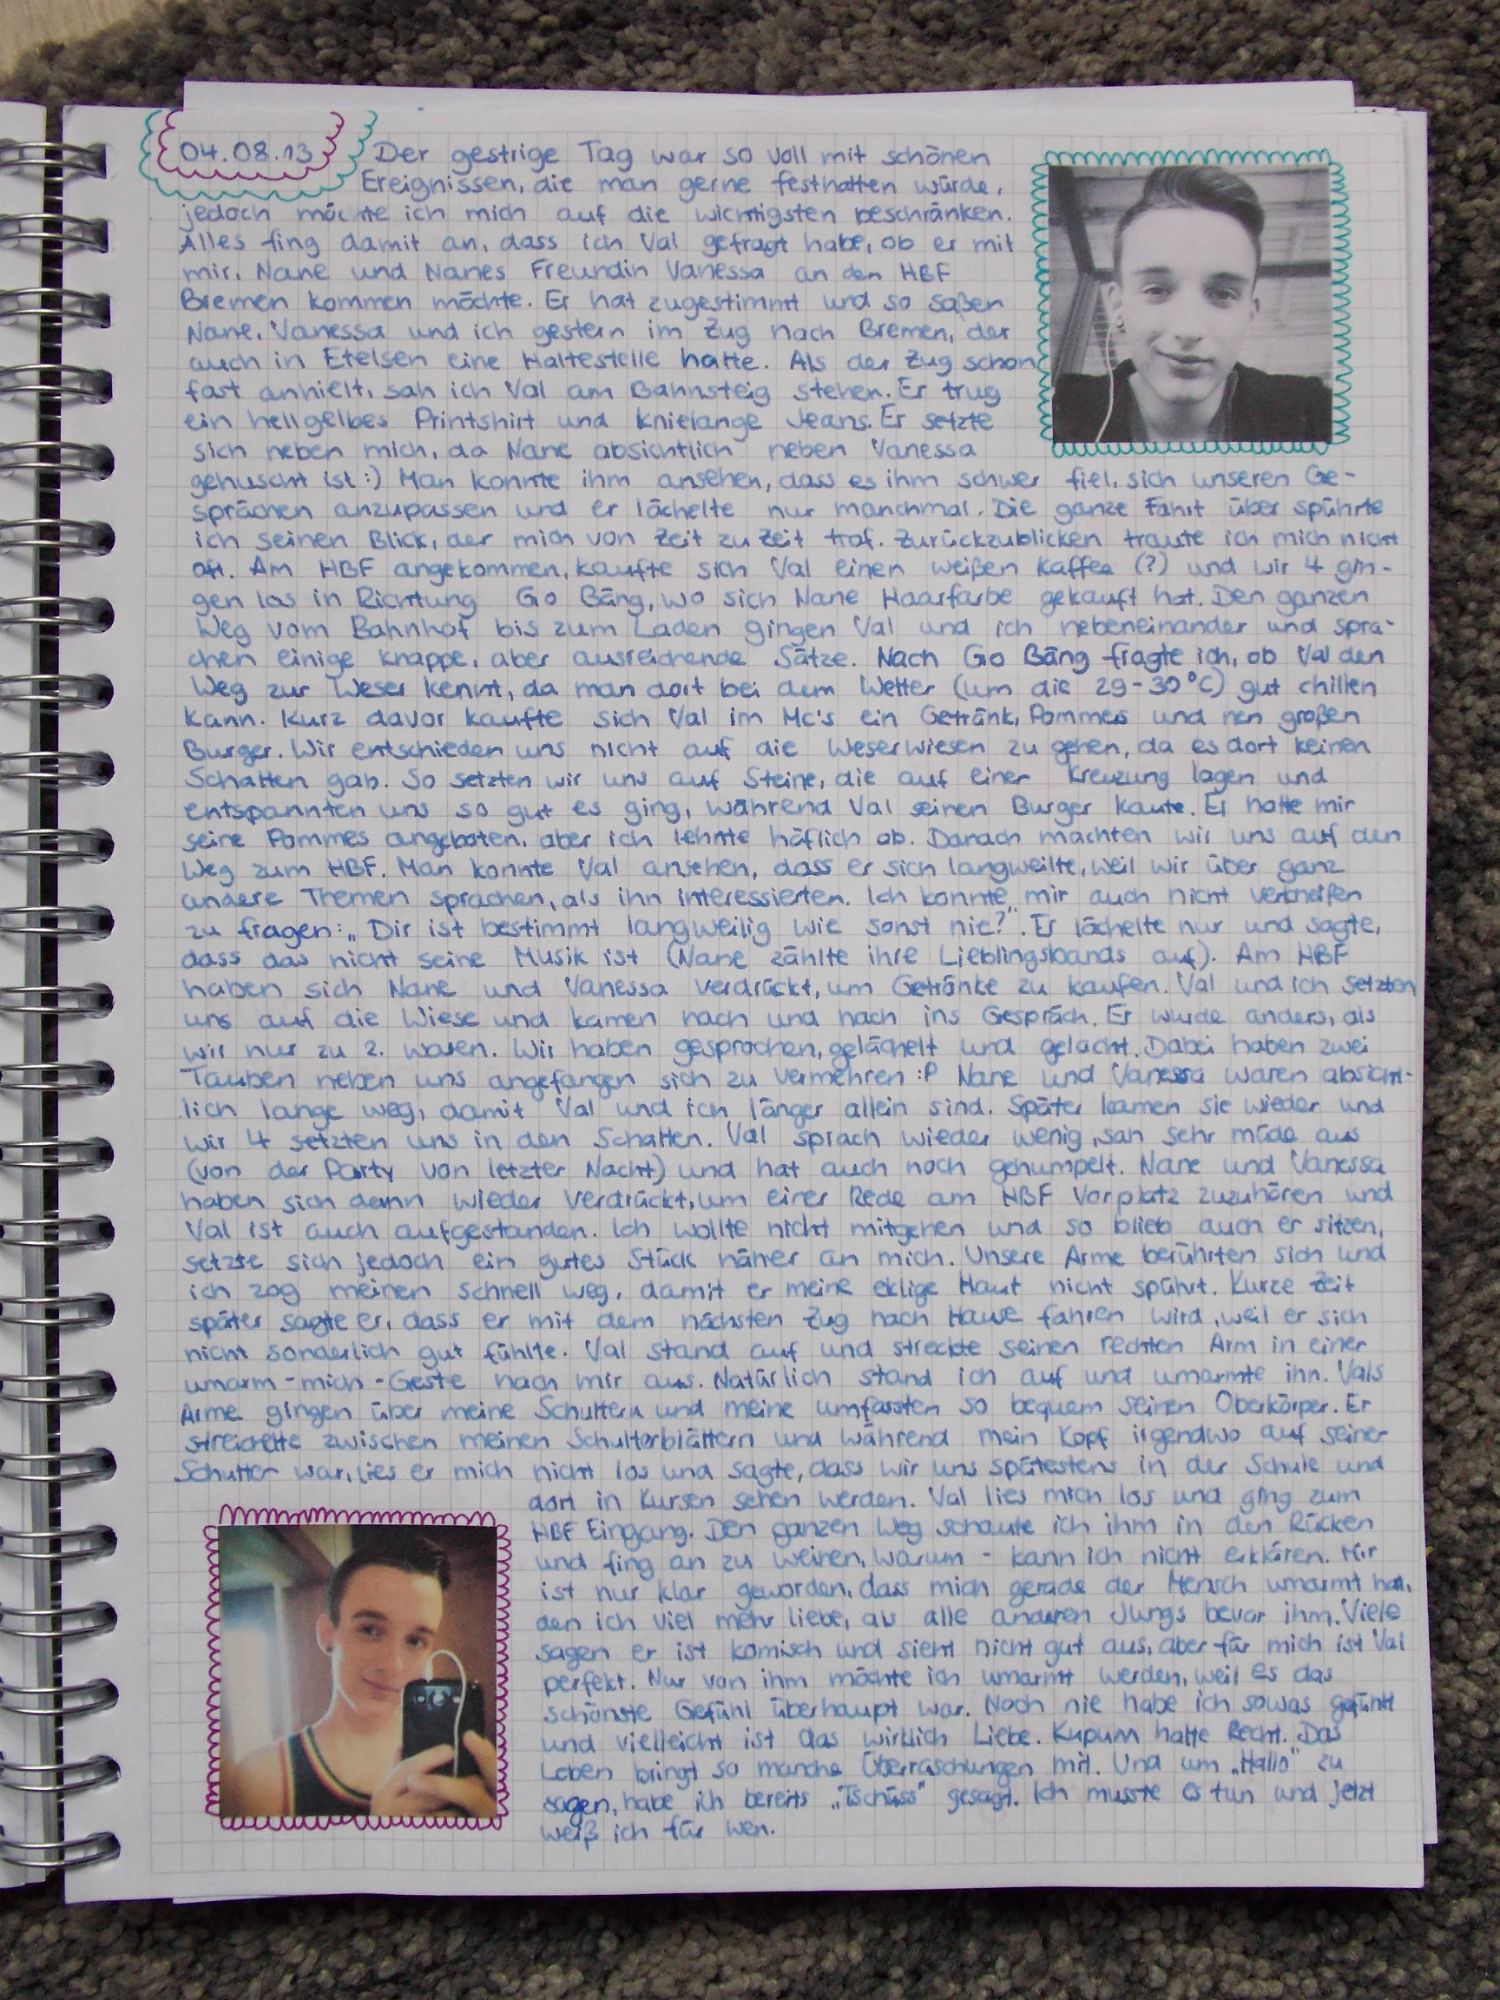 04.08.13 Der gestrige Tag war so voll mit schönen
Ereignissen, die man gerne festhalten würde,
jedoch möchte ich mich auf die wichtigsten beschränken.
Alles fing damit an, dass ich Val gefragt habe, ob er mit
mir, Nane und Nanes Freundin Vanessa an den HBF
Bremen kommen möchte. Er hat zugestimmt und so saßen
Nane, Vanessa und ich gestern im Zug nach Bremen, der
auch in Etelsen eine Haltestelle hatte. Als der Zug schon
fast anhielt, sah ich Val am Bahnsteig stehen. Er trug
ein hellgelbes Printshirt und knielange Jeans. Er setzte
sich neben mich, da Nane absichtlich neben Vanessa
gehuscht ist :) Man konnte ihm ansehen, dass es ihm schwer fiel, sich unseren Ge-
sprächen anzupassen und er lächelte nur manchmal. Die ganze Fahrt über spührte
ich seinen Blick, der mich von Zeit zu Zeit traf. Zurückzublicken traute ich mich nicht
oft. Am HBF angekommen, kaufte sich Val einen weißen Kaffee (?) und wir 4 gin-
gen los in Richtung Go Bäng, wo sich Nane Haarfarbe gekauft hat. Den ganzen
Weg vom Bahnhof bis zum Laden gingen Val und ich nebeneinander und spra-
chen einige knappe, aber ausreichende Sätze. Nach Go Bäng fragte ich, ob Val den
Weg zur Weser kennt, da man dort bei dem Wetter (um die 29-30°C) gut chillen
kann. Kurz davor kaufte sich Val im Mc's ein Getränk, Pommes und nen großen
Burger. Wir entschieden uns nicht auf die Weserwiesen zu gehen, da es dort keinen
Schatten gab. So setzten wir uns auf Steine, die auf einer Kreuzung lagen und
entspannten uns so gut es ging, während Val seinen Burger kaute. Er hatte mir
seine Pommes angeboten, aber ich lehnte höflich ab. Danach machten wir uns auf den
Weg zum HBF. Man konnte Val ansehen, dass er sich langweilte, weil wir über ganz
andere Themen sprachen, als ihn interessierten. Ich konnte mir auch nicht verkneifen
zu fragen: „Dir ist bestimmt langweilig wie sonst nie?". Er lächelte nur und sagte,
dass das nicht seine Musik ist (Nane zählte ihre Lieblingsbands auf). Am HBF
haben sich Nane und Vanessa verdrückt, um Getränke zu kaufen. Val und ich setzten
uns auf die Wiese und kamen nach und nach ins Gespräch. Er wurde anders, als
wir nur zu 2. waren. Wir haben gesprochen, gelächelt und gelacht. Dabei haben zwei
Tauben neben uns angefangen sich zu vermehren :P Nane und Vanessa waren absicht-
lich lange weg, damit Val und ich länger allein sind. Später kamen sie wieder und
wir 4 setzten uns in den Schatten. Val sprach wieder wenig, sah sehr müde aus
(von der Party von letzter Nacht) und hat auch noch gehumpelt. Nane und Vanessa
haben sich dann wieder verdrückt, um einer Rede am HBF Vorplatz zuzuhören und
Val ist auch aufgestanden. Ich wollte nicht mitgehen und so blieb auch er sitzen,
setzte sich jedoch ein gutes Stück näher an mich. Unsere Arme berührten sich und
ich zog meinen schnell weg, damit er meine eklige Haut nicht spührt. Kurze Zeit
später sagte er, dass er mit dem nächsten Zug nach Hause fahren wird, weil er sich
nicht sonderlich gut fühlte. Val stand auf und streckte seinen rechten Arm in einer
umarm-mich-Geste nach mir aus. Natürlich stand ich auf und umarmte ihn. Vals
Arme gingen über meine Schultern und meine umfassten so bequem seinen Oberkörper. Er
streichelte zwischen meinen Schulterblättern und während mein Kopf irgendwo auf seiner
Schulter war, lies er mich nicht los und sagte, dass wir uns spätestens in der Schule und
dort in Kursen sehen werden. Val lies mich los und ging zum
HBF Eingang. Den ganzen Weg schaute ich ihm in den Rücken
und fing an zu weinen, warum - kann ich nicht erklären. Mir
ist nur klar geworden, dass mich gerade der Mensch umarmt hat,
den ich viel mehr liebe, als alle anderen Jungs bevor ihm. Viele
sagen er ist komisch und sieht nicht gut aus, aber für mich ist Val
perfekt. Nur von ihm möchte ich umarmt werden, weil es das
schönste Gefühl überhaupt war. Noch nie habe ich sowas gefühlt
und vielleicht ist das wirklich Liebe. Kupum hatte Recht. Das
Leben bringt so manche Überraschungen mit. Und um „Hallo" zu
sagen, habe ich bereits „Tschüss" gesagt. Ich musste es tun und jetzt
weiß ich für wen.